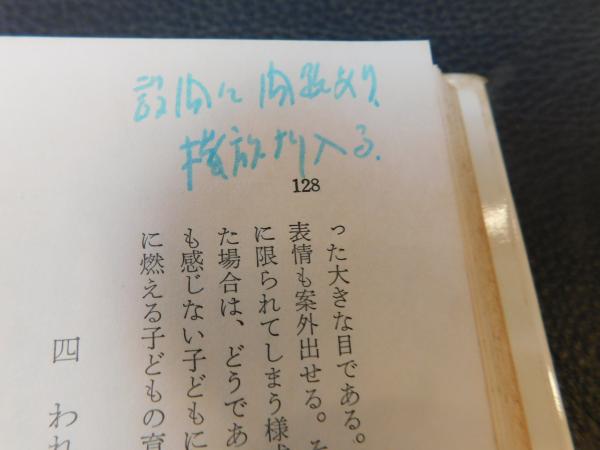 設問に問題あり、
入る.
128
った大きな目である。
表情も案外出せる。そ
に限られてしまう様
た場合は、どうであ
も感じない子どもに
に燃える子どもの育
四 われ